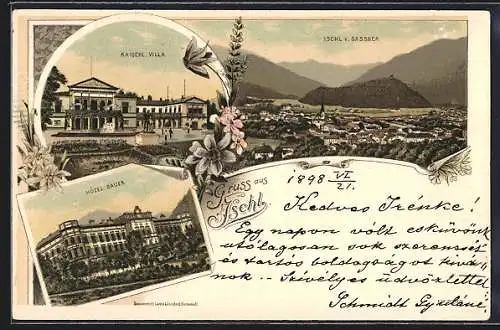 KAISERL. VILLA
ISCHL v. GASSNER
HÔTEL BAUER
Gruss aus
Ischl.
1898 VI/21.
Kedves Irénke!
Egy napon volt esküvőnk
utólagosan sok szerencsét
és tartós boldogságot kivá-
nok. - Szívélyes üdvözlettel
Schmidt